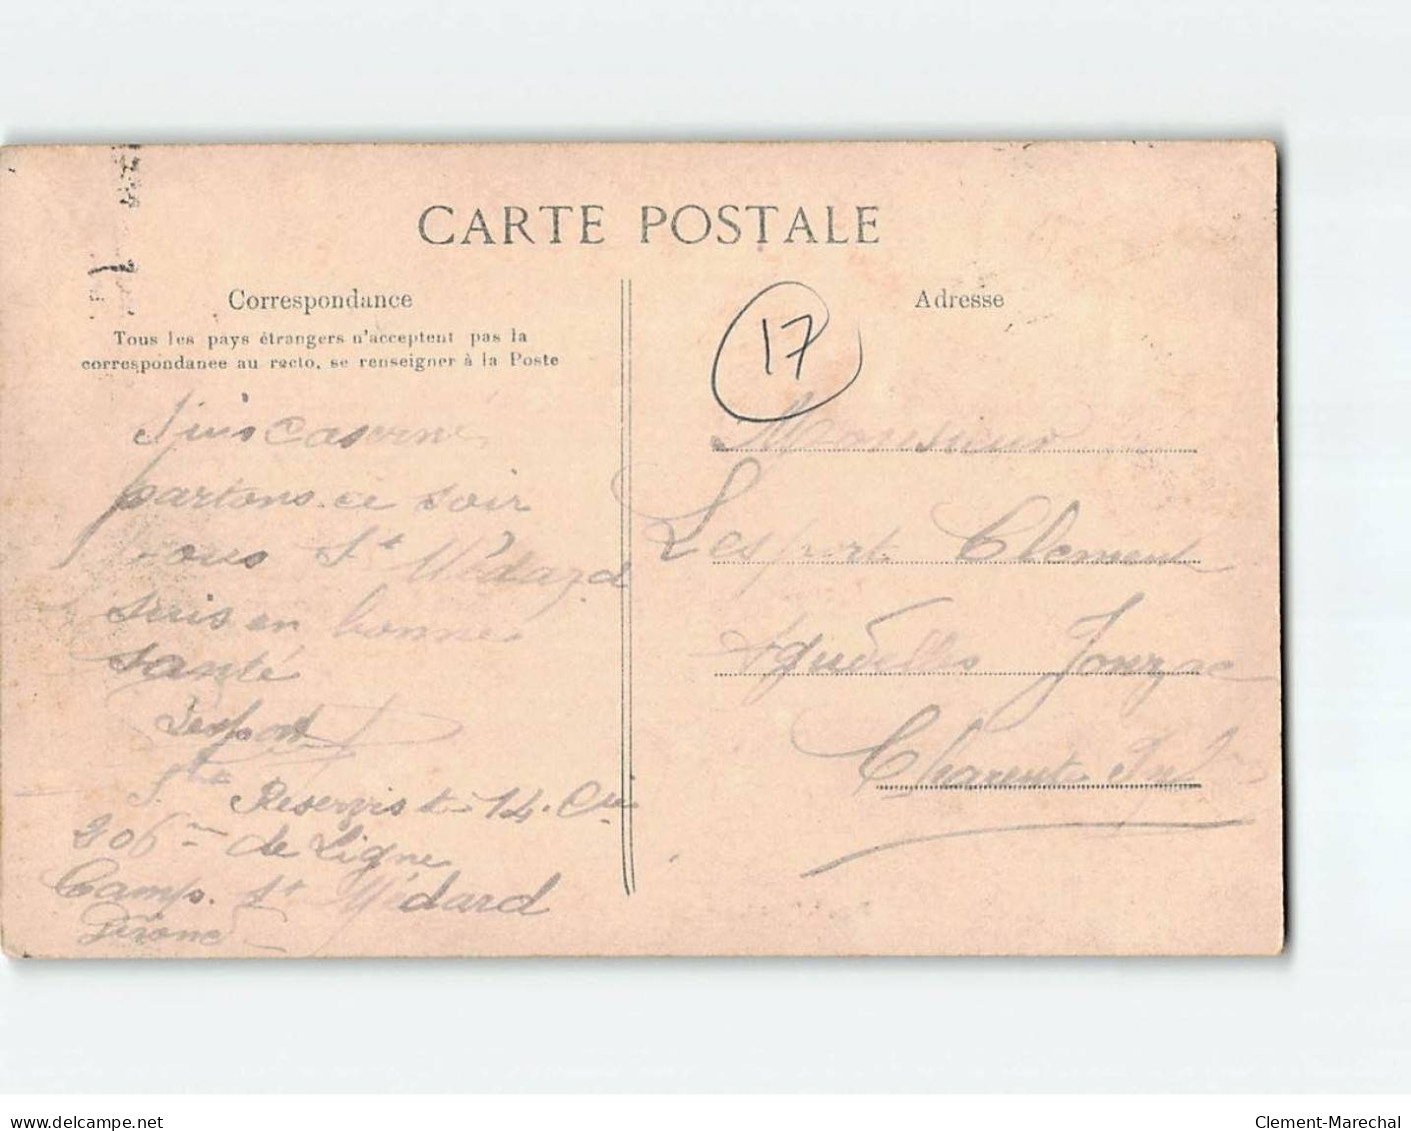 CARTE POSTALE
Correspondance
Tous les pays étrangers n'acceptent pas la
correspondance au recto, se renseigner à la Poste
Suis Caserne
partons ce soir
pous St Médard
suis en bonne
santé
Lesport
Reserviste 14. Cie
206 me de Ligne
Camp. St Médard
Girone
Adresse
17
Monsieur
Lesport Clement
Jonzac
Charente Infre
delcampe.net
Clement-Marechal